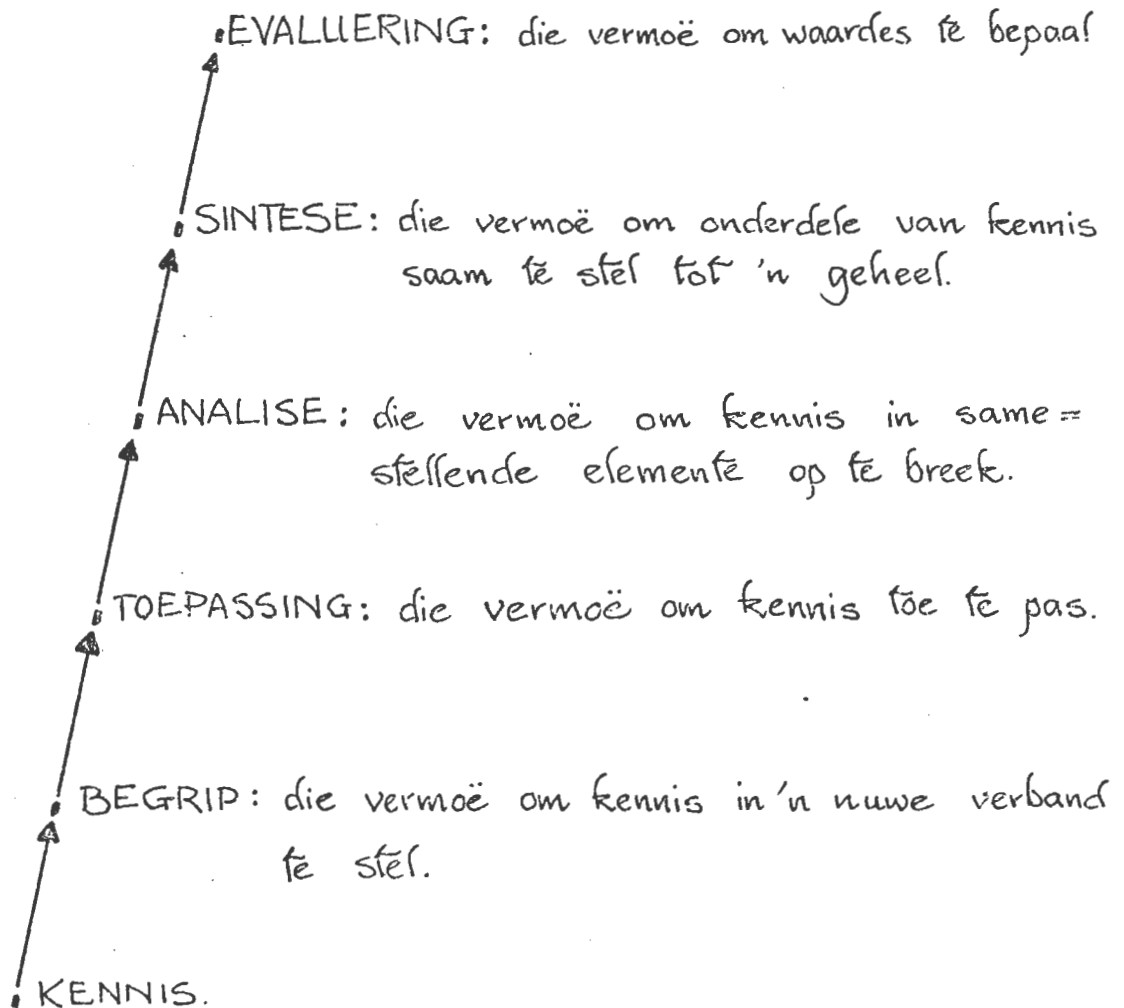 EVALUERING: die vermoë om waardes te bepaal
SINTESE: die vermoë om onderdele van kennis
saam te stel tot 'n geheel.
ANALISE: die vermoë om kennis in same=
stellende elemente op te breek.
TOEPASSING: die vermoë om kennis toe te pas.
BEGRIP: die vermoë om kennis in 'n nuwe verband
te stel.
KENNIS.